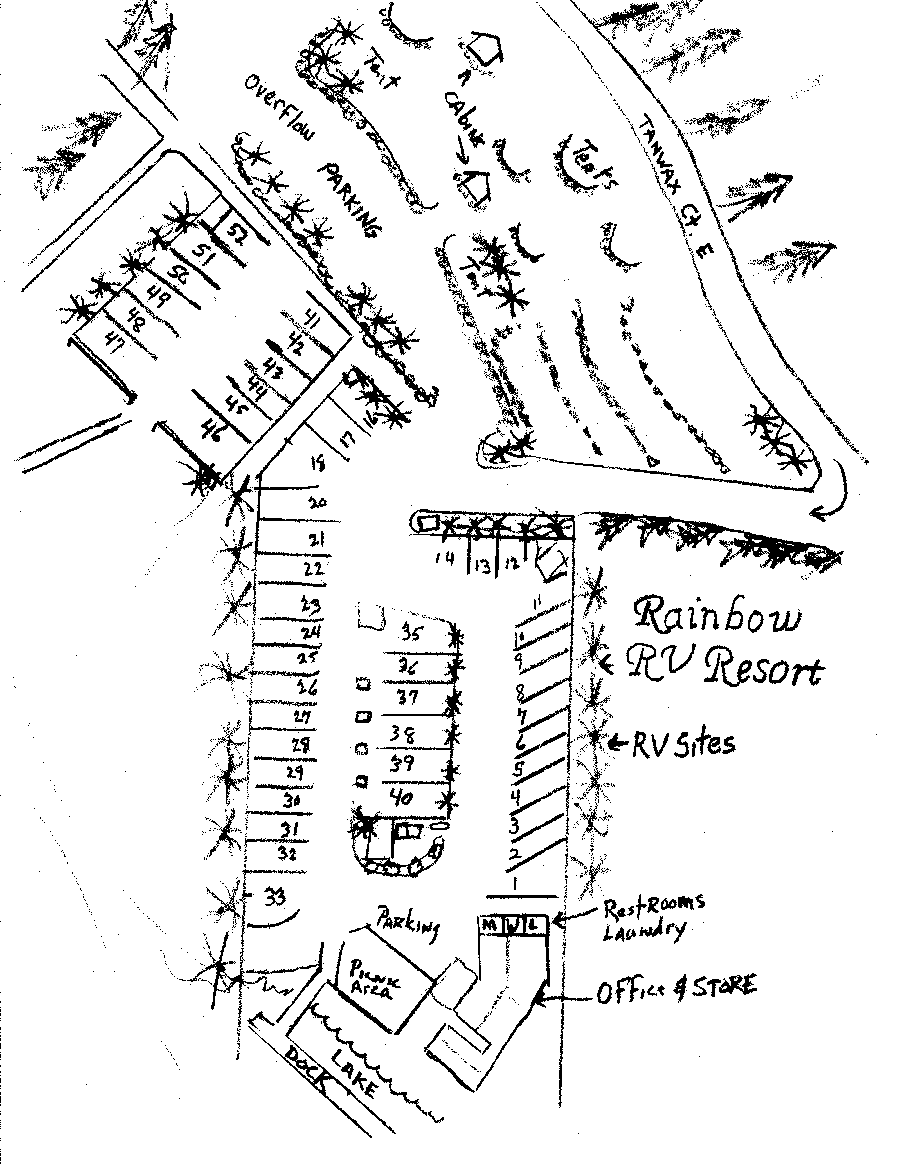 Tent
OverFlow
PARKING
CABINS
Tents
TANWAX Ct. E
Tent
52
51
50
49
48
47
41
42
43
44
45
46
16
17
18
20
21
22
23
24
25
26
27
28
29
30
31
32
33
14
13
12
11
10
9
8
7
6
5
4
3
2
1
35
36
37
38
39
40
Rainbow
RV Resort
RV Sites
RestRooms
Laundry
M W L
OFFice & STORE
PARKING
Picnic
Area
LAKE
DOCK